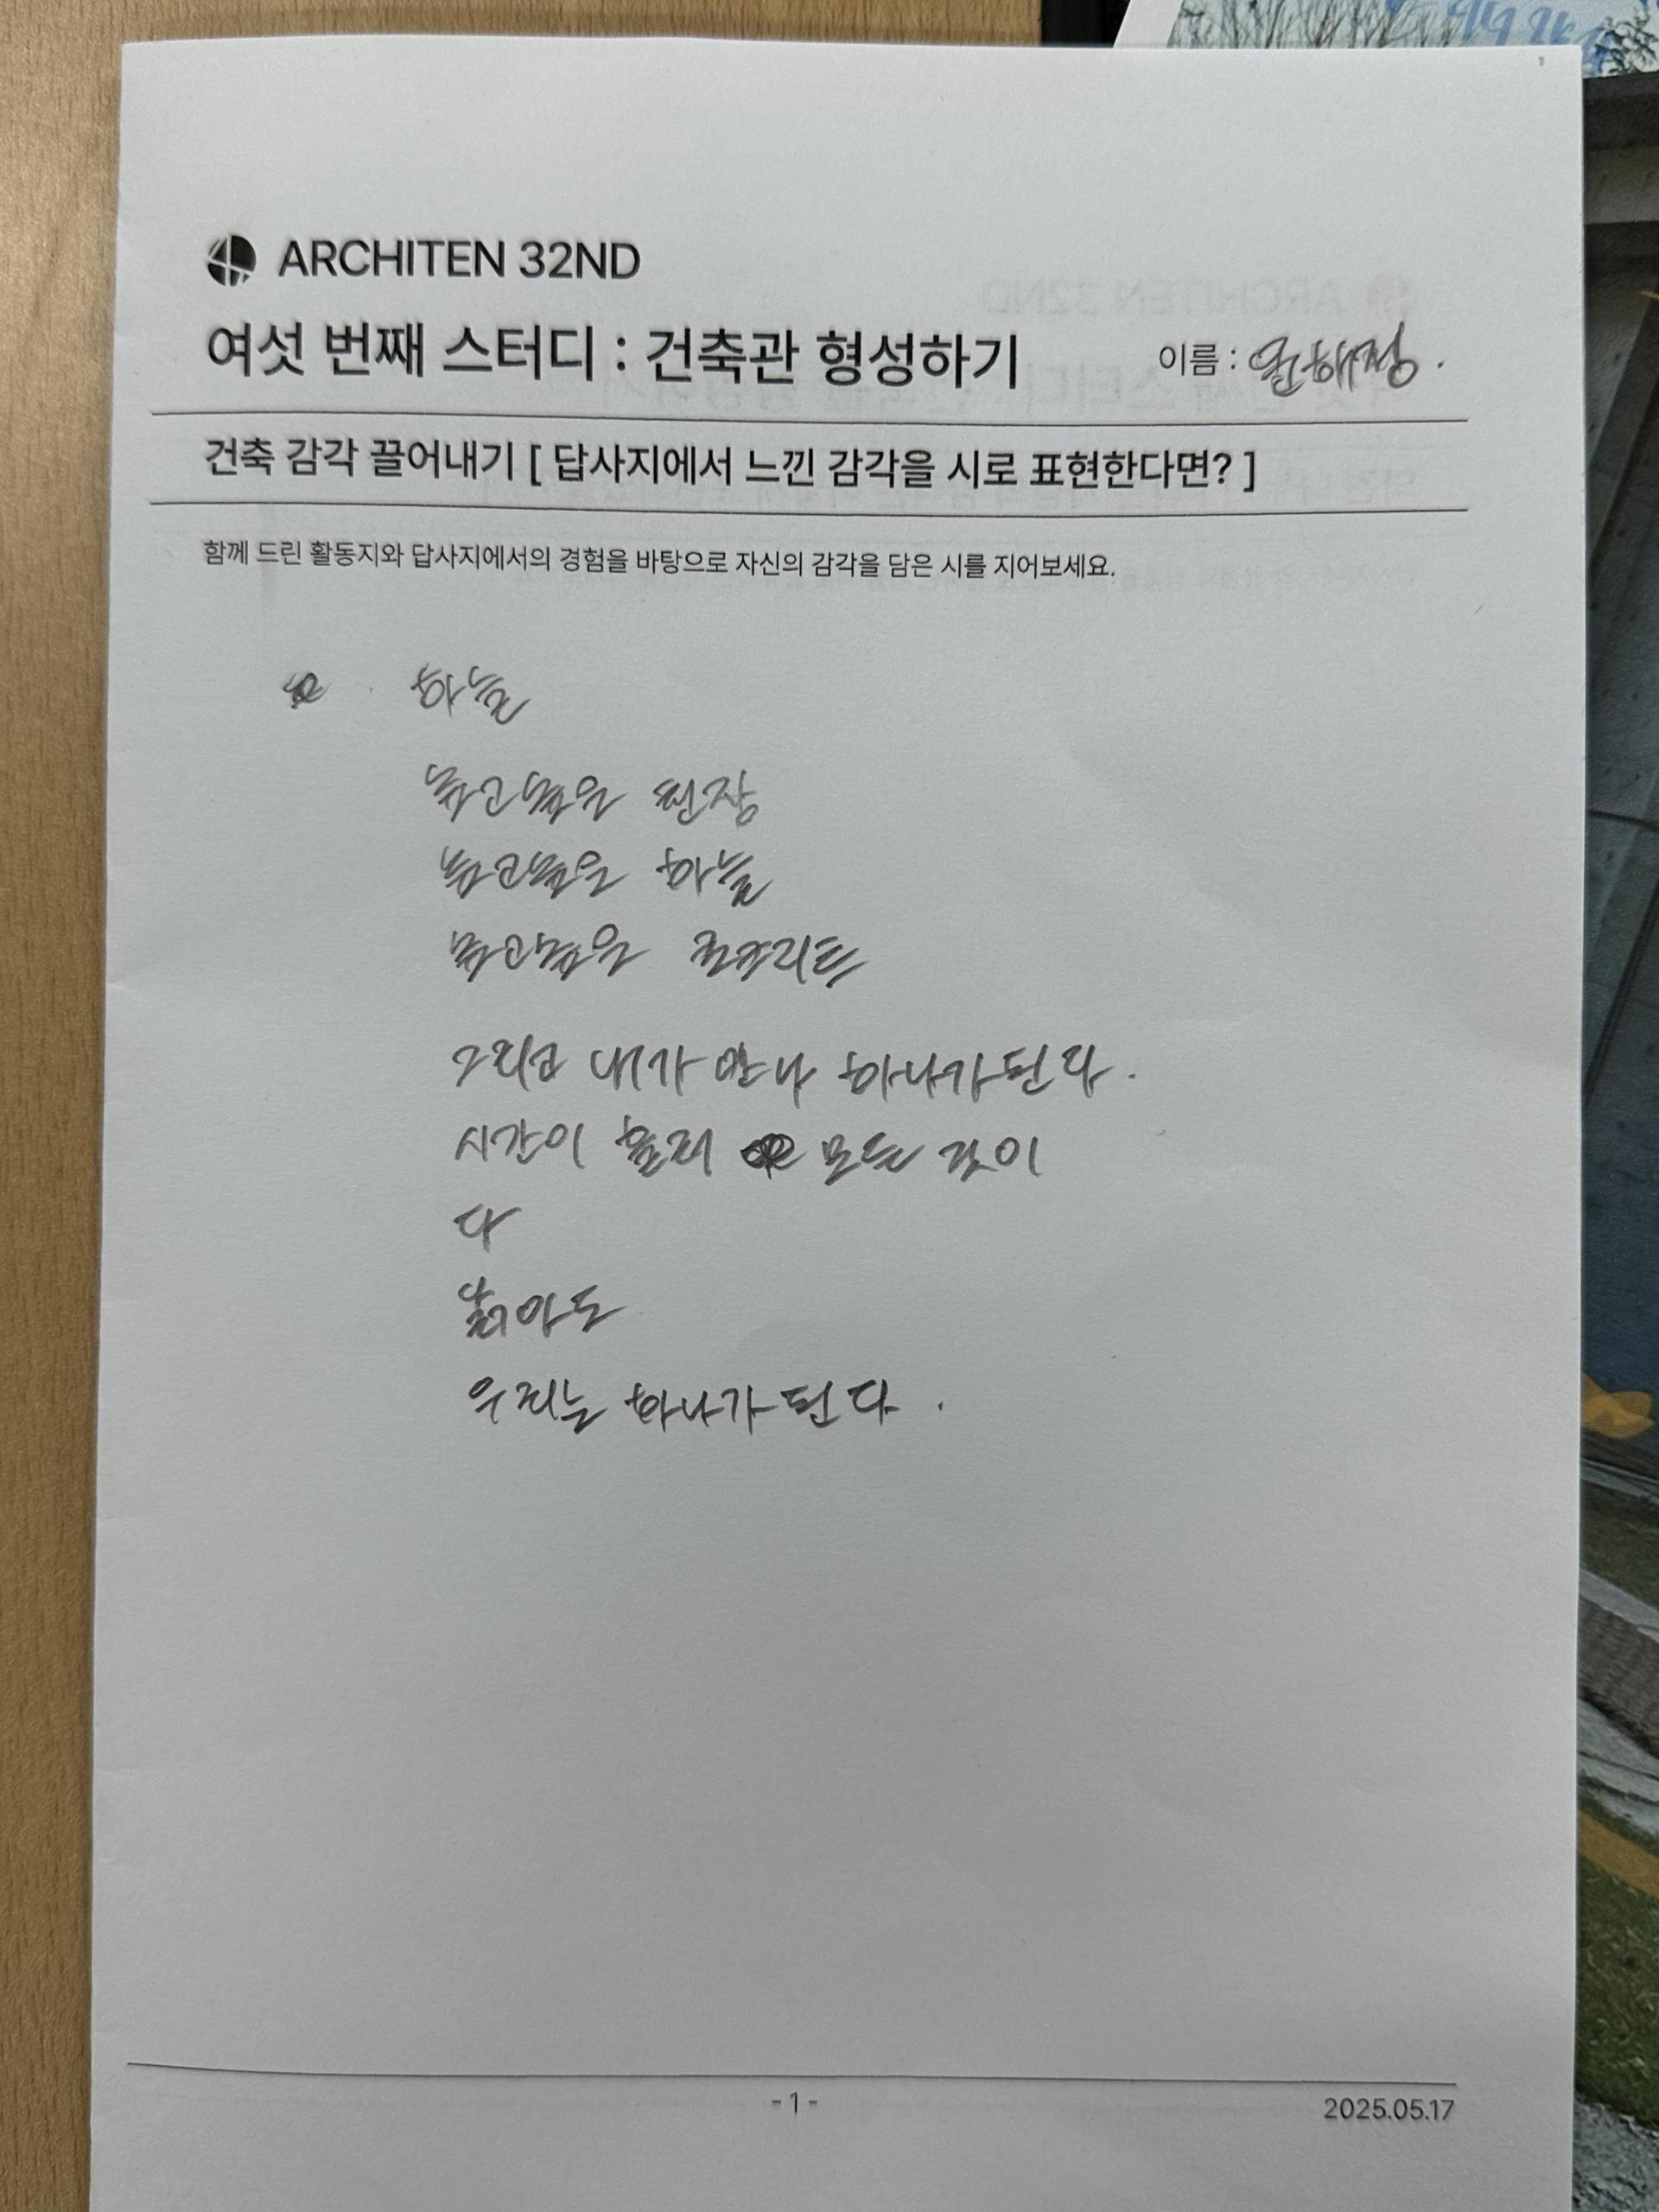 ARCHITEN 32ND
여섯 번째 스터디 : 건축관 형성하기
이름 : 윤해정.
건축 감각 끌어내기 [ 답사지에서 느낀 감각을 시로 표현한다면? ]
함께 드린 활동지와 답사지에서의 경험을 바탕으로 자신의 감각을 담은 시를 지어보세요.
하늘
높고 높은 천장
높고 높은 하늘
높고 높은 콘크리트
그리고 내가 만나 하나가 된다.
시간이 흘러 모든 것이
다
낡아도
우리는 하나가 된다.
- 1 -
2025.05.17